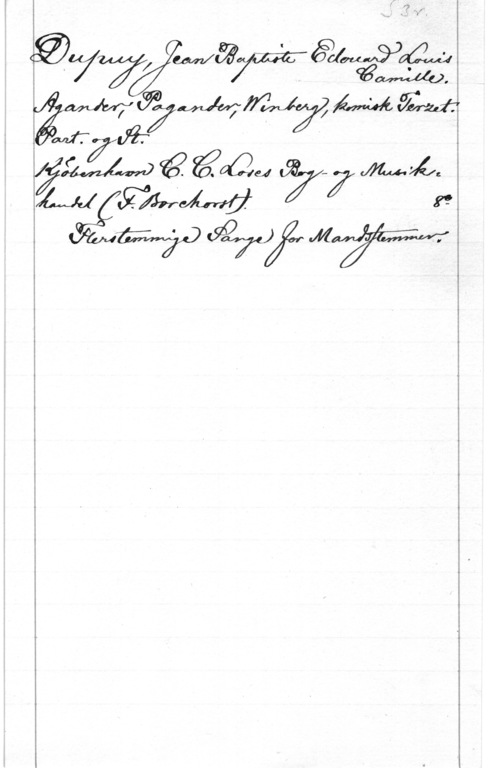 53r.
Dupuy, Jean Baptiste Edouard Louis
Camille.
Agander, Pagander, Winberg, komisk Terzet.
Part. og St.
Kjöbenhavn C. C. Loses Bog- og Musik-
handel (F. Borchorst). 8º
Flerstemmige Sange for Mandsstemmer.